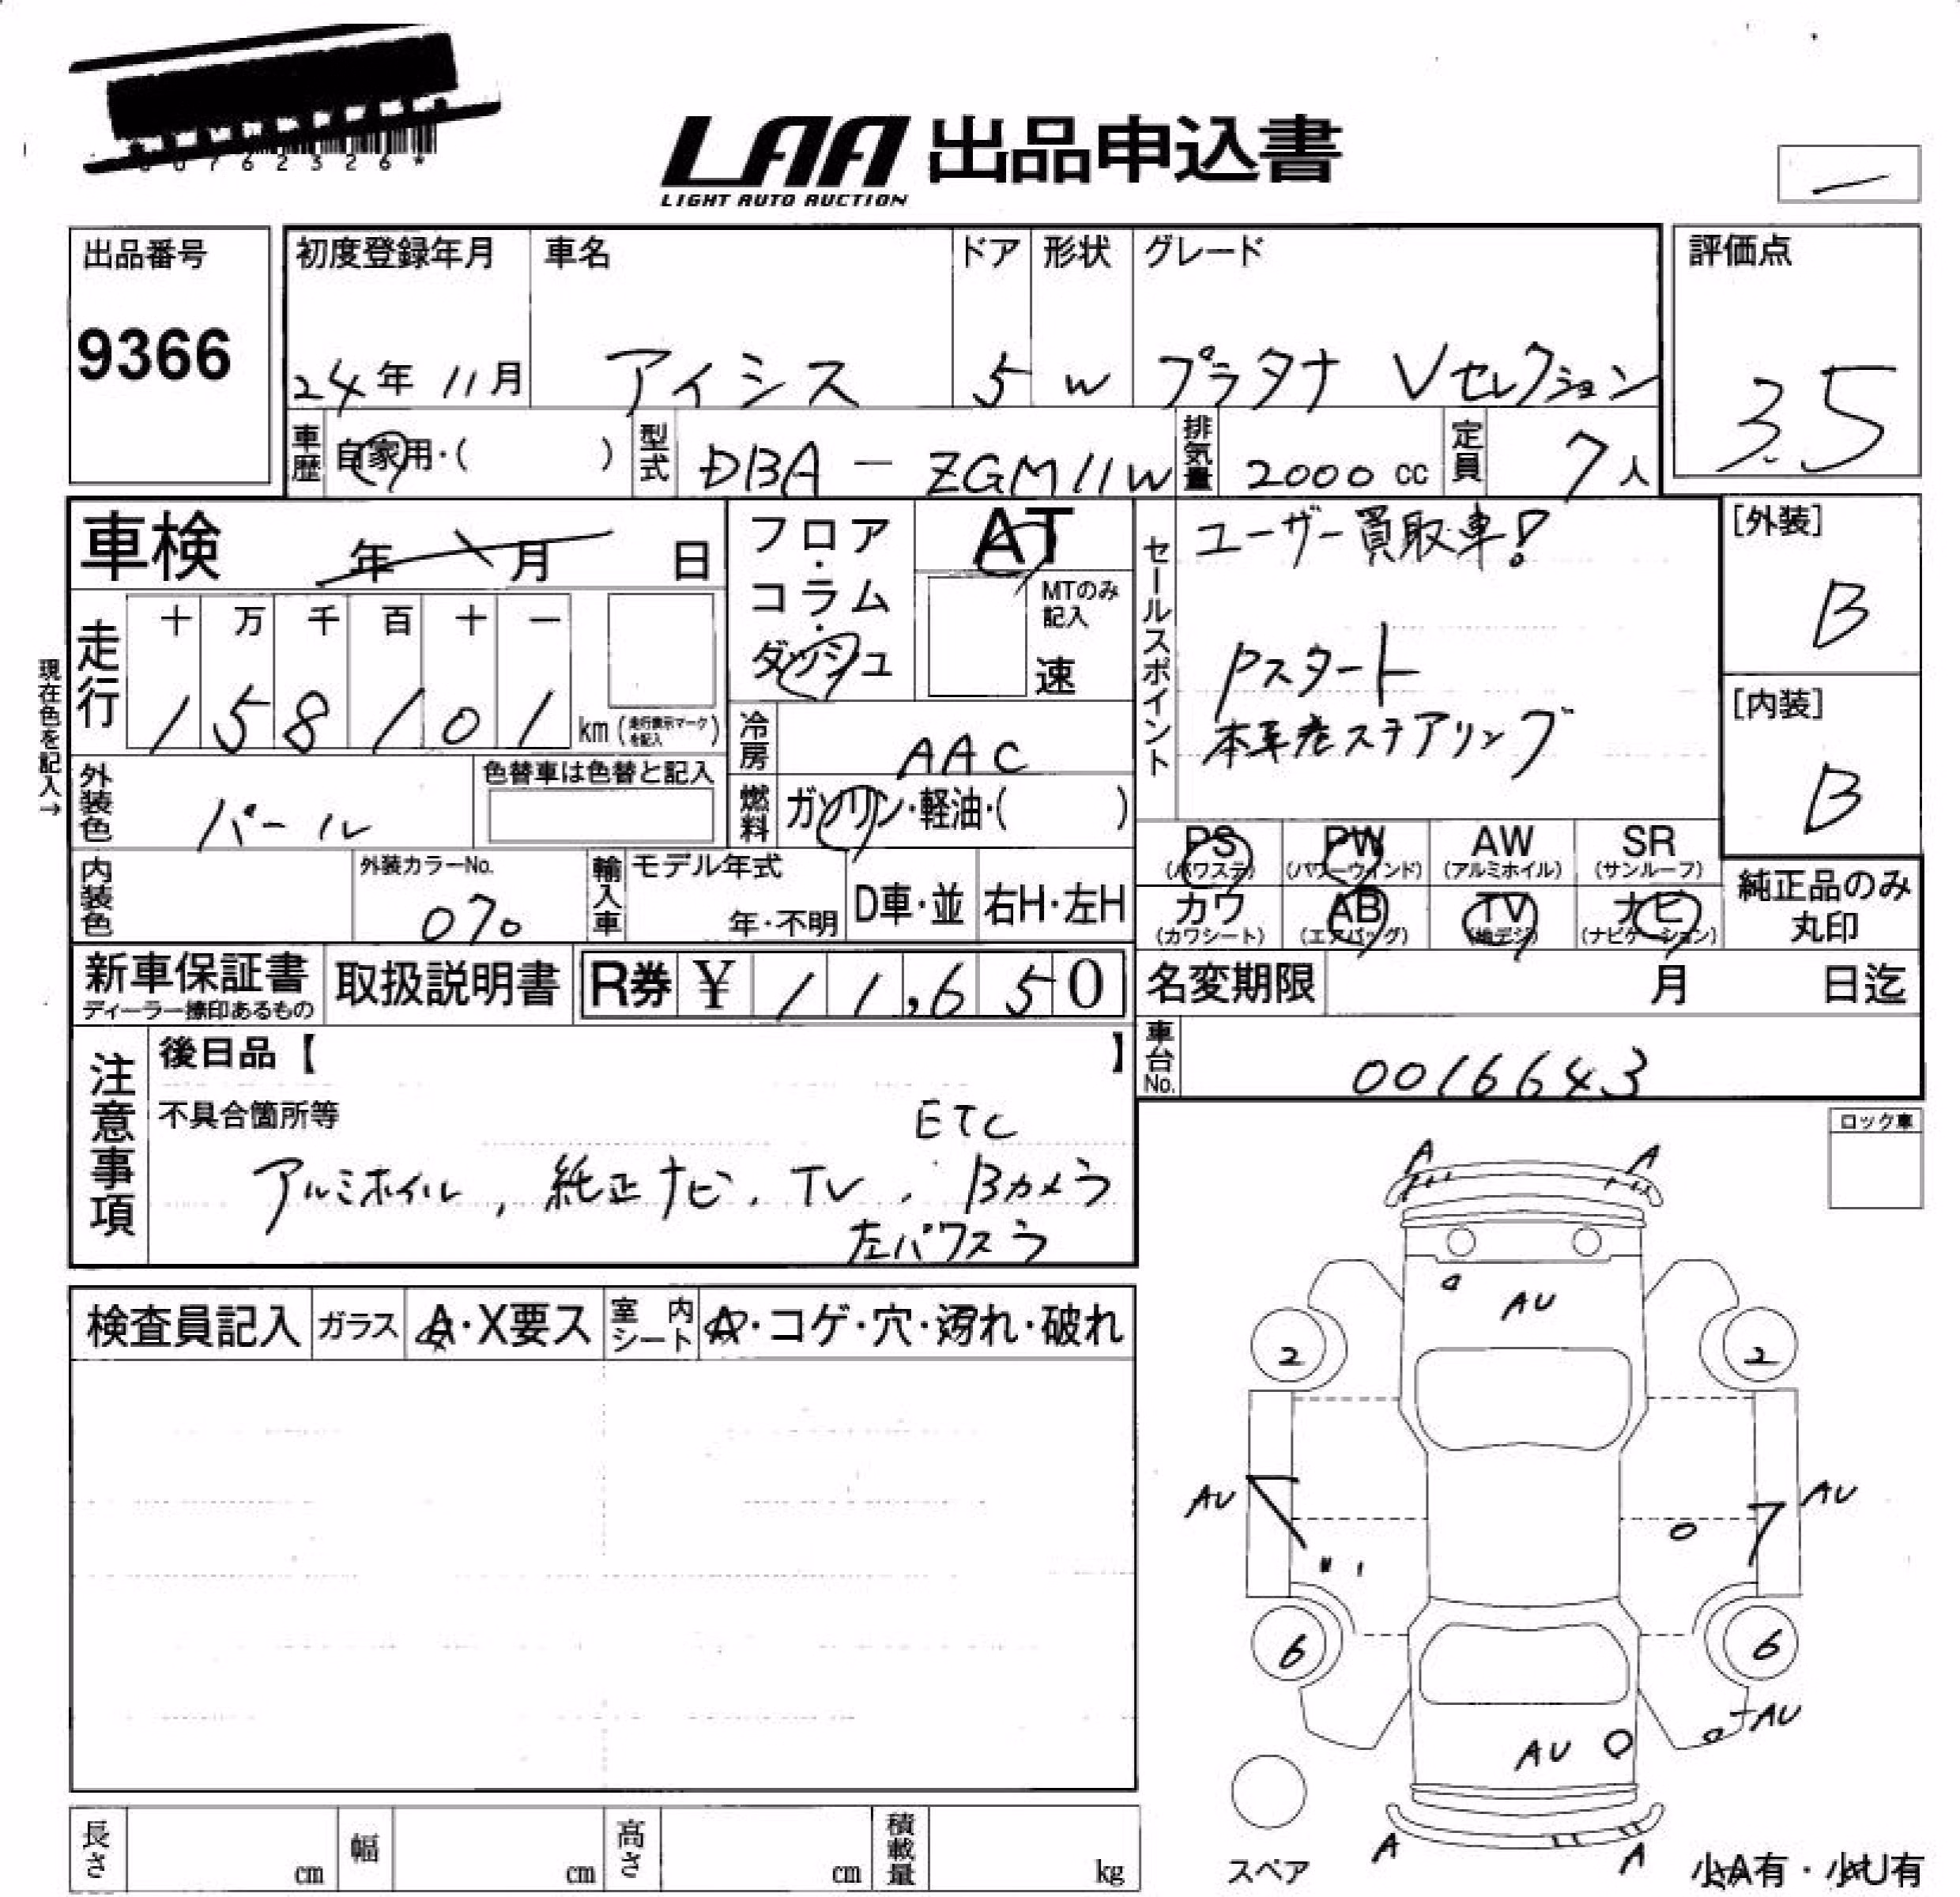 0762326*
LAA 出品申込書
LIGHT AUTO AUCTION
出品番号
9366
初度登録年月
24年 11月
車名
アイシス
ドア
5
形状
W
グレード
プラタナ Vセレクション
評価点
3.5
車歴
自家用・( )
型式
DBA - ZGM11W
排気量
2000 cc
定員
7人
車検 年 月 日
フロア・コラム・ダッシュ
AT
MTのみ記入
速
セールスポイント
ユーザー買取車!
Pスタート
本革巻ステアリング
[外装]
B
[内装]
B
現在色を記入→
走行
十 万 千 百 十 一
1 5 8 1 0 1
km (走行表示マークを記入)
冷房
AAC
外装色
パール
色替車は色替と記入
燃料
ガソリン・軽油・( )
PS (パワステ)
PW (パワーウィンド)
AW (アルミホイル)
SR (サンルーフ)
カワ (カワシート)
AB (エアバッグ)
TV (地デジ)
ナビ (ナビゲーション)
純正品のみ丸印
内装色
外装カラーNo.
070
輸入車
モデル年式
年・不明
D車・並
右H・左H
新車保証書
ディーラー捺印あるもの
取扱説明書
R券 ¥ 11,650
名変期限 月 日迄
車台No.
0016643
注意事項
後日品【 】
不具合箇所等
ETC
アルミホイル, 純正ナビ. TV. Bカメラ
左パワスラ
ロック車
検査員記入
ガラス
A・X要ス
室内シート
A・コゲ・穴・汚れ・破れ
A A
AU
2 2
AU AU
6 6
AU
AU
A A
スペア
小A有・小U有
長さ cm
幅 cm
高さ cm
積載量 kg